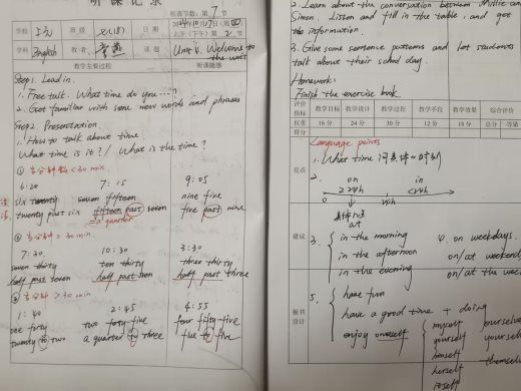 听课记录
听课学期: 第 7 节
学校 班级 日期
学科 English 教者 课题 Unit 6. Welcome to the unit
教学主要过程 听课随感
Step1. Lead in.
1. Free talk. What time do you ...?
2. Get familiar with some new words and phrases
Step2. Presentation.
1. How to talk about time
What time is it? / What is the time?
① 当分钟数 < 30 min
6:20 7:15 9:05
six twenty seven fifteen nine five
twenty past six fifteen past seven five past nine
a quarter
② 当分钟 = 30 min.
7:30 10:30 3:30
seven thirty ten thirty three thirty
half past seven half past ten half past three
③ 当分钟 > 30 min
1:40 2:45 4:55
one forty two forty five four fifty-five
twenty to two a quarter to three five to five
2. Learn about the conversation between Millie and
Simon. Listen and fill in the table, and get
the information.
3. Give some sentence patterns and let students
talk about their school day.
Homework:
Finish the exercise book.
评价指标 教学目标 教学设计 教学过程 教学手段 教学效果 综合评价
权重 16分 24分 30分 12分 18分 总分 等第
Language points
1. What time 问具体时刻
2.
on in
24h <24h
0 24h
具体时刻
at
建议
3. in the morning
in the afternoon
in the evening
4. on weekdays
on/at weekend
on/at the
5. have fun
have a good time + doing
enjoy oneself
myself ourselves
yourself yourselves
himself themselves
herself
itself
板书设计